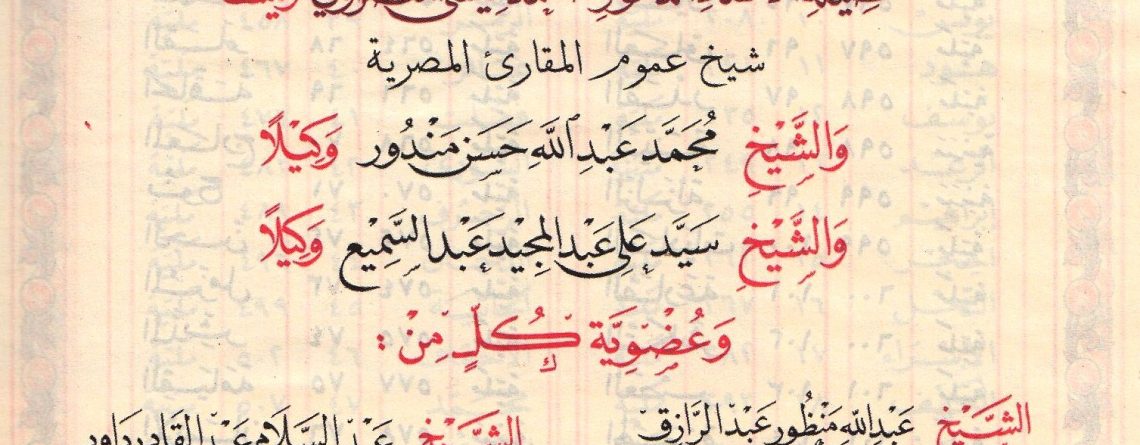 شيخ عموم المقارئ المصرية
وَالشَّيْخِ مُحَمَّد عَبْدِ اللَّهِ حَسَن مَنْدُور وَكِيْلاً
وَالشَّيْخِ سَيِّد عَلِى عَبْدِ المجِيْد عَبْد السَّمِيْع وَكِيْلاً
وَعُضْوِيَّة كُلٍّ مِنْ :
الشَّيْخ عَبْدالله مَنْظُور عَبْد الرَّازِق الشَّيْخ عَبْد السَّلَام عَبْد القَادِر دَاود